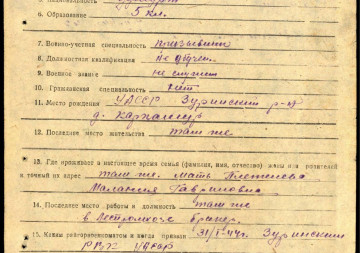 6. Образование 5 кл.
7. Военно-учетная специальность призывник
8. Должностная квалификация не обучен.
9. Военное звание не служил
10. Гражданская специальность нет
11. Место рождения УАССР Зуринский р-н
д.
12. Последнее место жительства там же
13. Где проживает в настоящее время семья (фамилия, имя, отчество) жены или родителей
и точный их адрес там же. Мать
Малания Гавриловна
14. Последнее место работы и должность там же
в бригад.
15. Каким райгорвоенкоматом и когда призван 31/5-44г. Зуринским
РВК УАССР